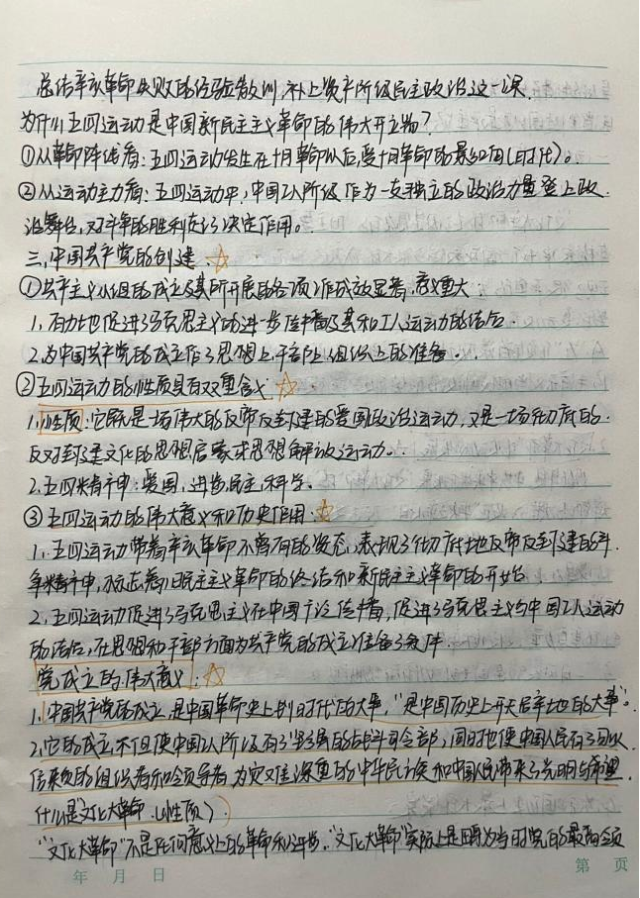 总结辛亥革命失败的经验教训,补上资产阶级民主政治这一课.
为什么五四运动是中国新民主主义革命的伟大开端?
①从革命阵线看:五四运动发生在十月革命以后,受十月革命的影响(时代)。
②从运动主力看:五四运动中,中国工人阶级作为一支独立的政治力量登上政
治舞台,对斗争的胜利起了决定作用。
三.中国共产党的创建.
①共产主义小组的成立及其所开展的各项工作成效显著,意义重大.
1.有力地促进了马克思主义的进一步传播及其和工人运动的结合.
2.为中国共产党的成立作了思想上,干部上,组织上的准备.
②五四运动的性质具有双重含义
1.性质:它既是一场伟大的反帝反封建的爱国政治运动,又是一场彻底的.
反对封建文化的思想启蒙或思想解放运动.
2.五四精神:爱国,进步,民主,科学.
③五四运动的伟大意义和历史作用.
1.五四运动带着辛亥革命不曾有的姿态,表现了彻底地反帝反封建的斗
争精神,标志着旧民主主义革命的终结和新民主主义革命的开始
2.五四运动促进了马克思主义在中国广泛传播,促进了马克思主义与中国工人运动
的结合,在思想和干部方面为共产党的成立准备了条件
党成立的伟大意义:
1.中国共产党的成立,是中国革命史上划时代的大事,"是中国历史上开天辟地的大事"。
2.它的成立,不但使中国工人阶级有了坚强的战斗司令部,同时也使中国人民有了可以
信赖的组织者和领导者,为灾难深重的中华民族和中国人民带来了光明与希望.
什么是"文化大革命.(性质)
"文化大革命"不是任何意义上的革命和进步."文化大革命"实际上是因为当时党的最高领
年 月 日
第 页